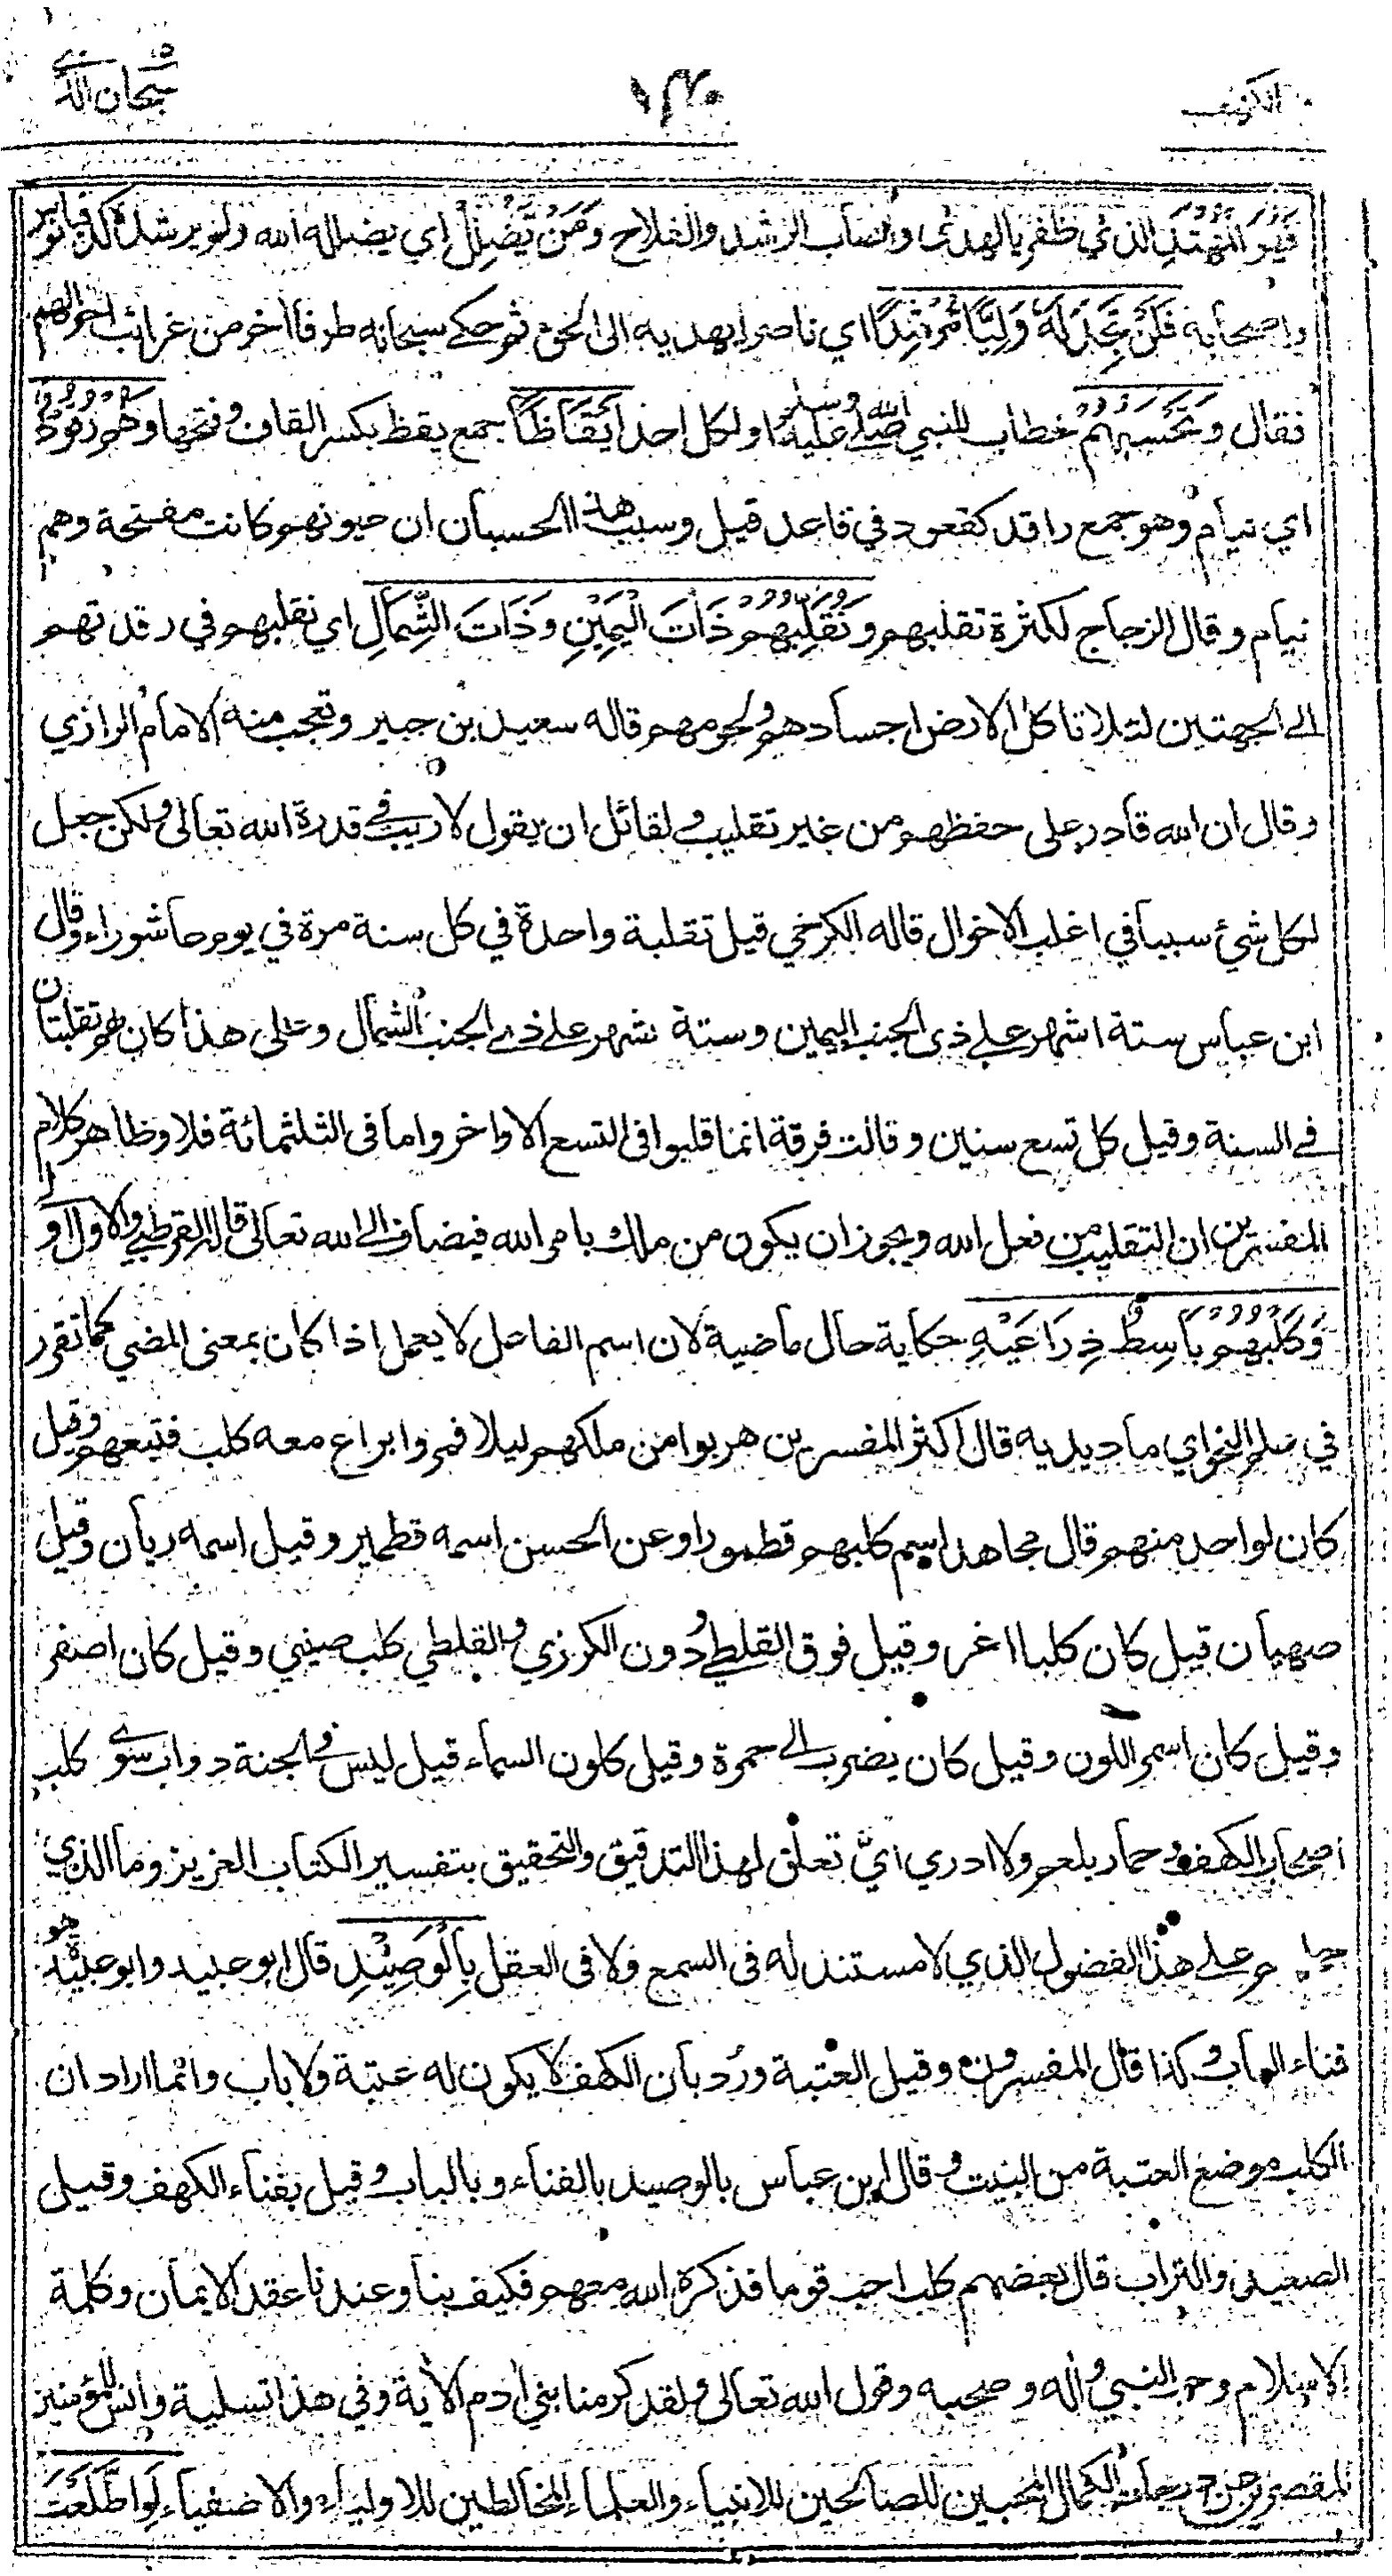 الكهف ١٤٠ سبحان الذي
فَهُوَ الْمُهْتَدِ الذي ظفر بالهدى واصاب الرشد والفلاح وَمَنْ يُّضْلِلْ اي يضلله الله ولم يرشده كدقيانوس
واصحابه فَلَنْ تَجِدَ لَهُ وَلِيًّا مُّرْشِدًا اي ناصرا يهديه الى الحق ثم حكى سبحانه طرفا اخر من غرائب احوالهم
فقال وَتَحْسَبُهُمْ خطاب للنبي صلى الله عليه وسلم او لكل احد أَيْقَاظًا جمع يقظ بكسر القاف وفتحها وَهُمْ رُقُودٌ
اي نيام وهو جمع راقد كقعود في قاعد قيل وسبب هذا الحسبان ان عيونهم كانت مفتحة وهم
نيام وقال الزجاج لكثرة تقلبهم وَنُقَلِّبُهُمْ ذَاتَ الْيَمِيْنِ وَذَاتَ الشِّمَالِ اي نقلبهم في رقدتهم
الى الجهتين لئلا تاكل الارض اجسادهم ولحومهم قاله سعيد بن جبير وتعجب منه الامام الرازي
وقال ان الله قادر على حفظهم من غير تقليب ولقائل ان يقول لا ريب في قدرة الله تعالى ولكن جعل
لكل شيء سببا في اغلب الاحوال قاله الكرخي قيل تقلبة واحدة في كل سنة مرة في يوم عاشوراء وقال
ابن عباس ستة اشهر على ذي الجنب اليمين وستة شهر على ذي الجنب الشمال وعلى هذا كان لهم تقلبتان
في السنة وقيل كل تسع سنين وقالت فرقة انما قلبوا في التسع الاواخر واما في الثلثمائة فلا وظاهر كلام
المفسرين ان التقليب من فعل الله ويجوز ان يكون من ملك بامر الله فيضاف الى الله تعالى قاله القرطبي والاول اولى
وَكَلْبُهُمْ بَاسِطٌ ذِرَاعَيْهِ حكاية حال ماضية لان اسم الفاعل لا يعمل اذا كان بمعنى المضي كما تقرر
في علم النحو اي مادّ يديه قال اكثر المفسرين هربوا من ملكهم ليلا فمروا براع معه كلب فتبعهم وقيل
كان لواحد منهم قال مجاهد اسم كلبهم قطمورا وعن الحسن اسمه قطمير وقيل اسمه ريان وقيل
صهبان قيل كان كلبا اغر وقيل فوق القلطي ودون الكرزي والقلطي كلب صيني وقيل كان اصفر
وقيل كان اسمر اللون وقيل كان يضرب الى حمرة وقيل كلون السماء قيل ليس في الجنة دواب سوى كلب
اصحاب الكهف وحمار بلعم ولا ادري ايّ تعلق لهذا التدقيق والتحقيق بتفسير الكتاب العزيز وما الذي
على هذا الفضول الذي لا مستند له في السمع ولا في العقل بِالْوَصِيْدِ قال ابو عبيد وابو عبيدة هو
فناء الباب وكذا قال المفسرون وقيل العتبة ورُد بان الكهف لا يكون له عتبة ولا باب وانما اراد ان
الكلب موضع العتبة من البيت وقال ابن عباس بالوصيد بالفناء وبالباب وقيل بفناء الكهف وقيل
الصعيد والتراب قال بعضهم كلب احب قوما فذكره الله معهم فكيف بنا وعندنا عقد الايمان وكلمة
الاسلام وحب النبي وأله وصحبه وقول الله تعالى ولقد كرمنا بني أدم الأية وفي هذا تسلية وانس للمؤمنين
المقصرين عن درجات الكمال المحبين للصالحين للانبياء والعلماء المخالطين للاولياء والاصفياء لَوِ اطَّلَعْتَ